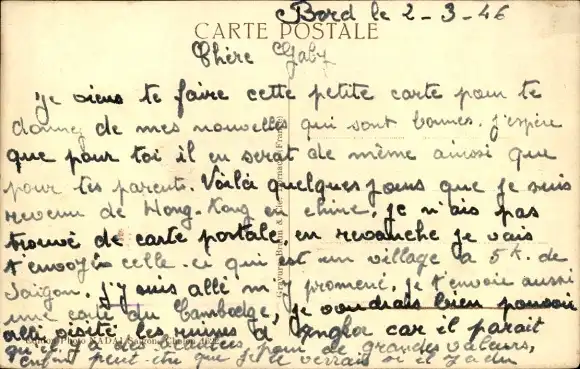 Bord le 2-3-46
CARTE POSTALE
Chère Gaby
Je viens te faire cette petite carte pour te
donner de mes nouvelles qui sont bonnes. j'espère
que pour toi il en serat de même ainssi que
pour tes parents. Voilà quelques jours que je suis
revenu de Hong-Kong en chine, je n'ais pas
trouvé de carte postale, en revanche je vais
t'envoyér celle-ci qui est un village à 5k. de
Saigon. j'y suis allé m'y promené, je t'envoie aussi
une carte du Cambodge, je voudrais bien pouvoir
allé visité les ruines d'Angkor car il parait
qu'il y a des de grandes valeurs,
enfin peut-etre que je le verrais où il y a du
Photo NADAL Saigon